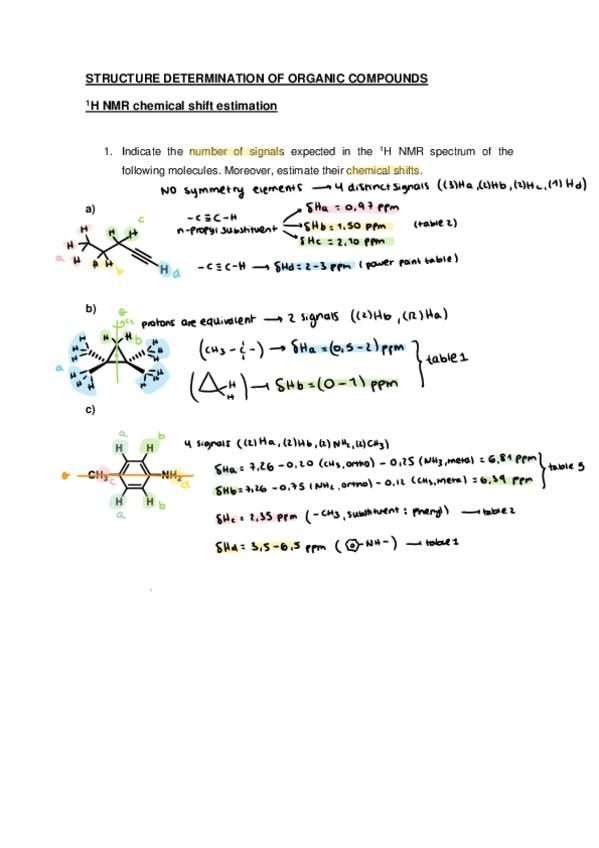 STRUCTURE DETERMINATION OF ORGANIC COMPOUNDS
¹H NMR chemical shift estimation
1. Indicate the number of signals expected in the ¹H NMR spectrum of the
following molecules. Moreover, estimate their chemical shifts.
NO symmetry elements → 4 distinct signals ((3)Ha,(2)Hb,(2)Hc,(1)Hd)
a)
-C≡C-H
n-propyl substituent
δHa = 0,97 ppm
δHb = 1,50 ppm (table 2)
δHc = 2,10 ppm
-C≡C-H → δHd = 2-3 ppm (power point table)
H H H H H H H H
a b c d
b)
protons are equivalent → 2 signals ((2)Hb,(12)Ha)
(CH3-C-) → δHa = (0,5-2) ppm
H H → δHb = (0-1) ppm
table 1
a b
c)
4 signals ((2)Ha,(2)Hb,(2)NH2,(2)CH3)
δHa = 7,26 - 0,20 (CH3, ortho) - 0,25 (NH3, meta) = 6,81 ppm
δHb = 7,26 - 0,75 (NH2, ortho) - 0,12 (CH3, meta) = 6,39 ppm
table 5
δHc = 2,35 ppm (-CH3, substituent: phenyl) → table 2
δHd = 3,5-6,5 ppm ( -NH-) → table 1
a b
H H
CH3 c NH2 d
H H
a b